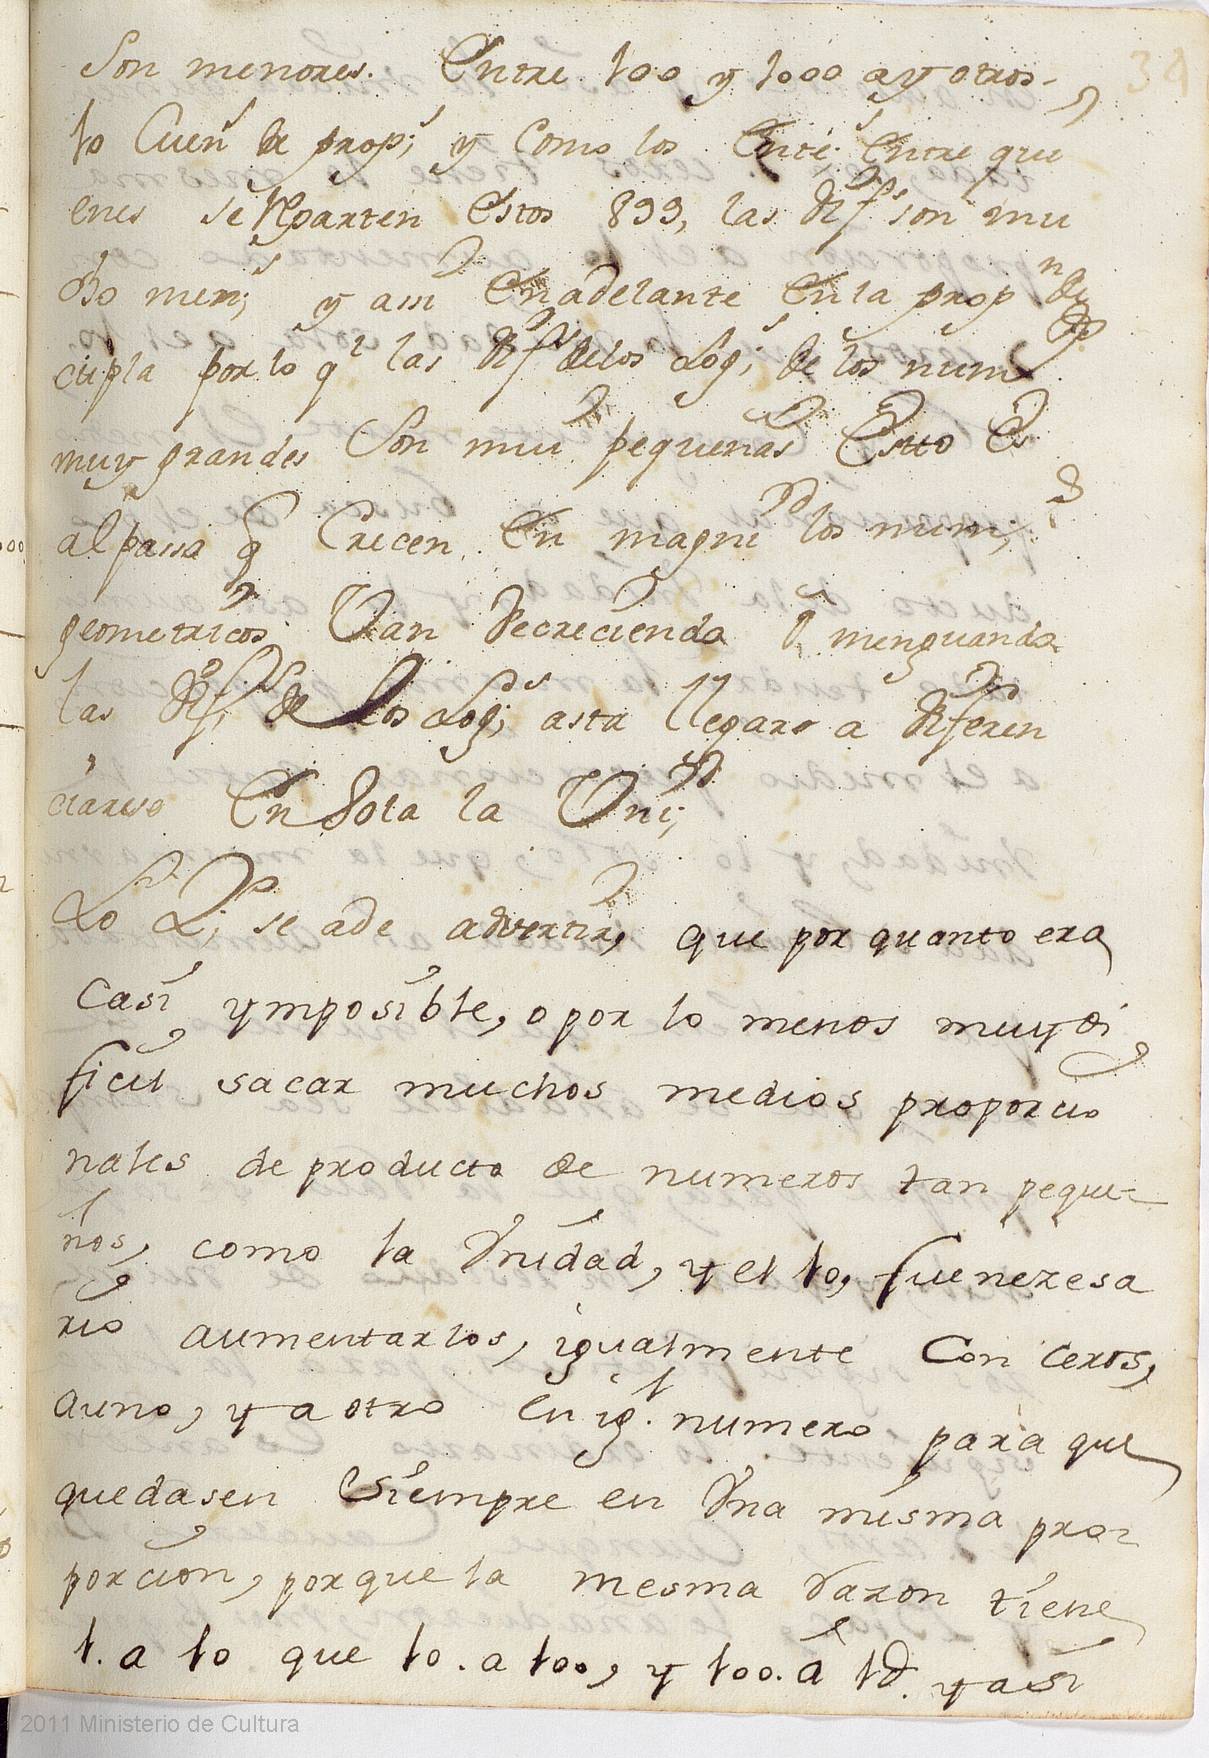 34
son menores. Entre 100 y 1000 ay otros
y como los Entre que
enes se Reparten Estos 899, las difs son mu
cho men; y assi En adelante En la prop de
cupla por lo q las difs de los Log; de los num
muy grandes son mui pequenas Esto Es
al passo q Crecen En magni los num;
geometricos Van decreciendo o menguando
las dif; de los Log; asta llegaro a diferen
ciarse En sola la Vni;
Lo se a de advertir, que por quanto era
casi ymposible, o por lo menos muy di
ficil sacar muchos medios proporcio
nales de producto de numeros tan peque-
ños, como la Vnidad, y el 10, fue nezesa
rio aumentarlos, igualmente Con ceros,
a uno, y a otro en ig.l numero para que
quedasen siempre en Vna misma pro-
porcion, porque la mesma razon tiene
1. a 10 que 10. a 100, y 100. a 1U. y asi
2011 Ministerio de Cultura